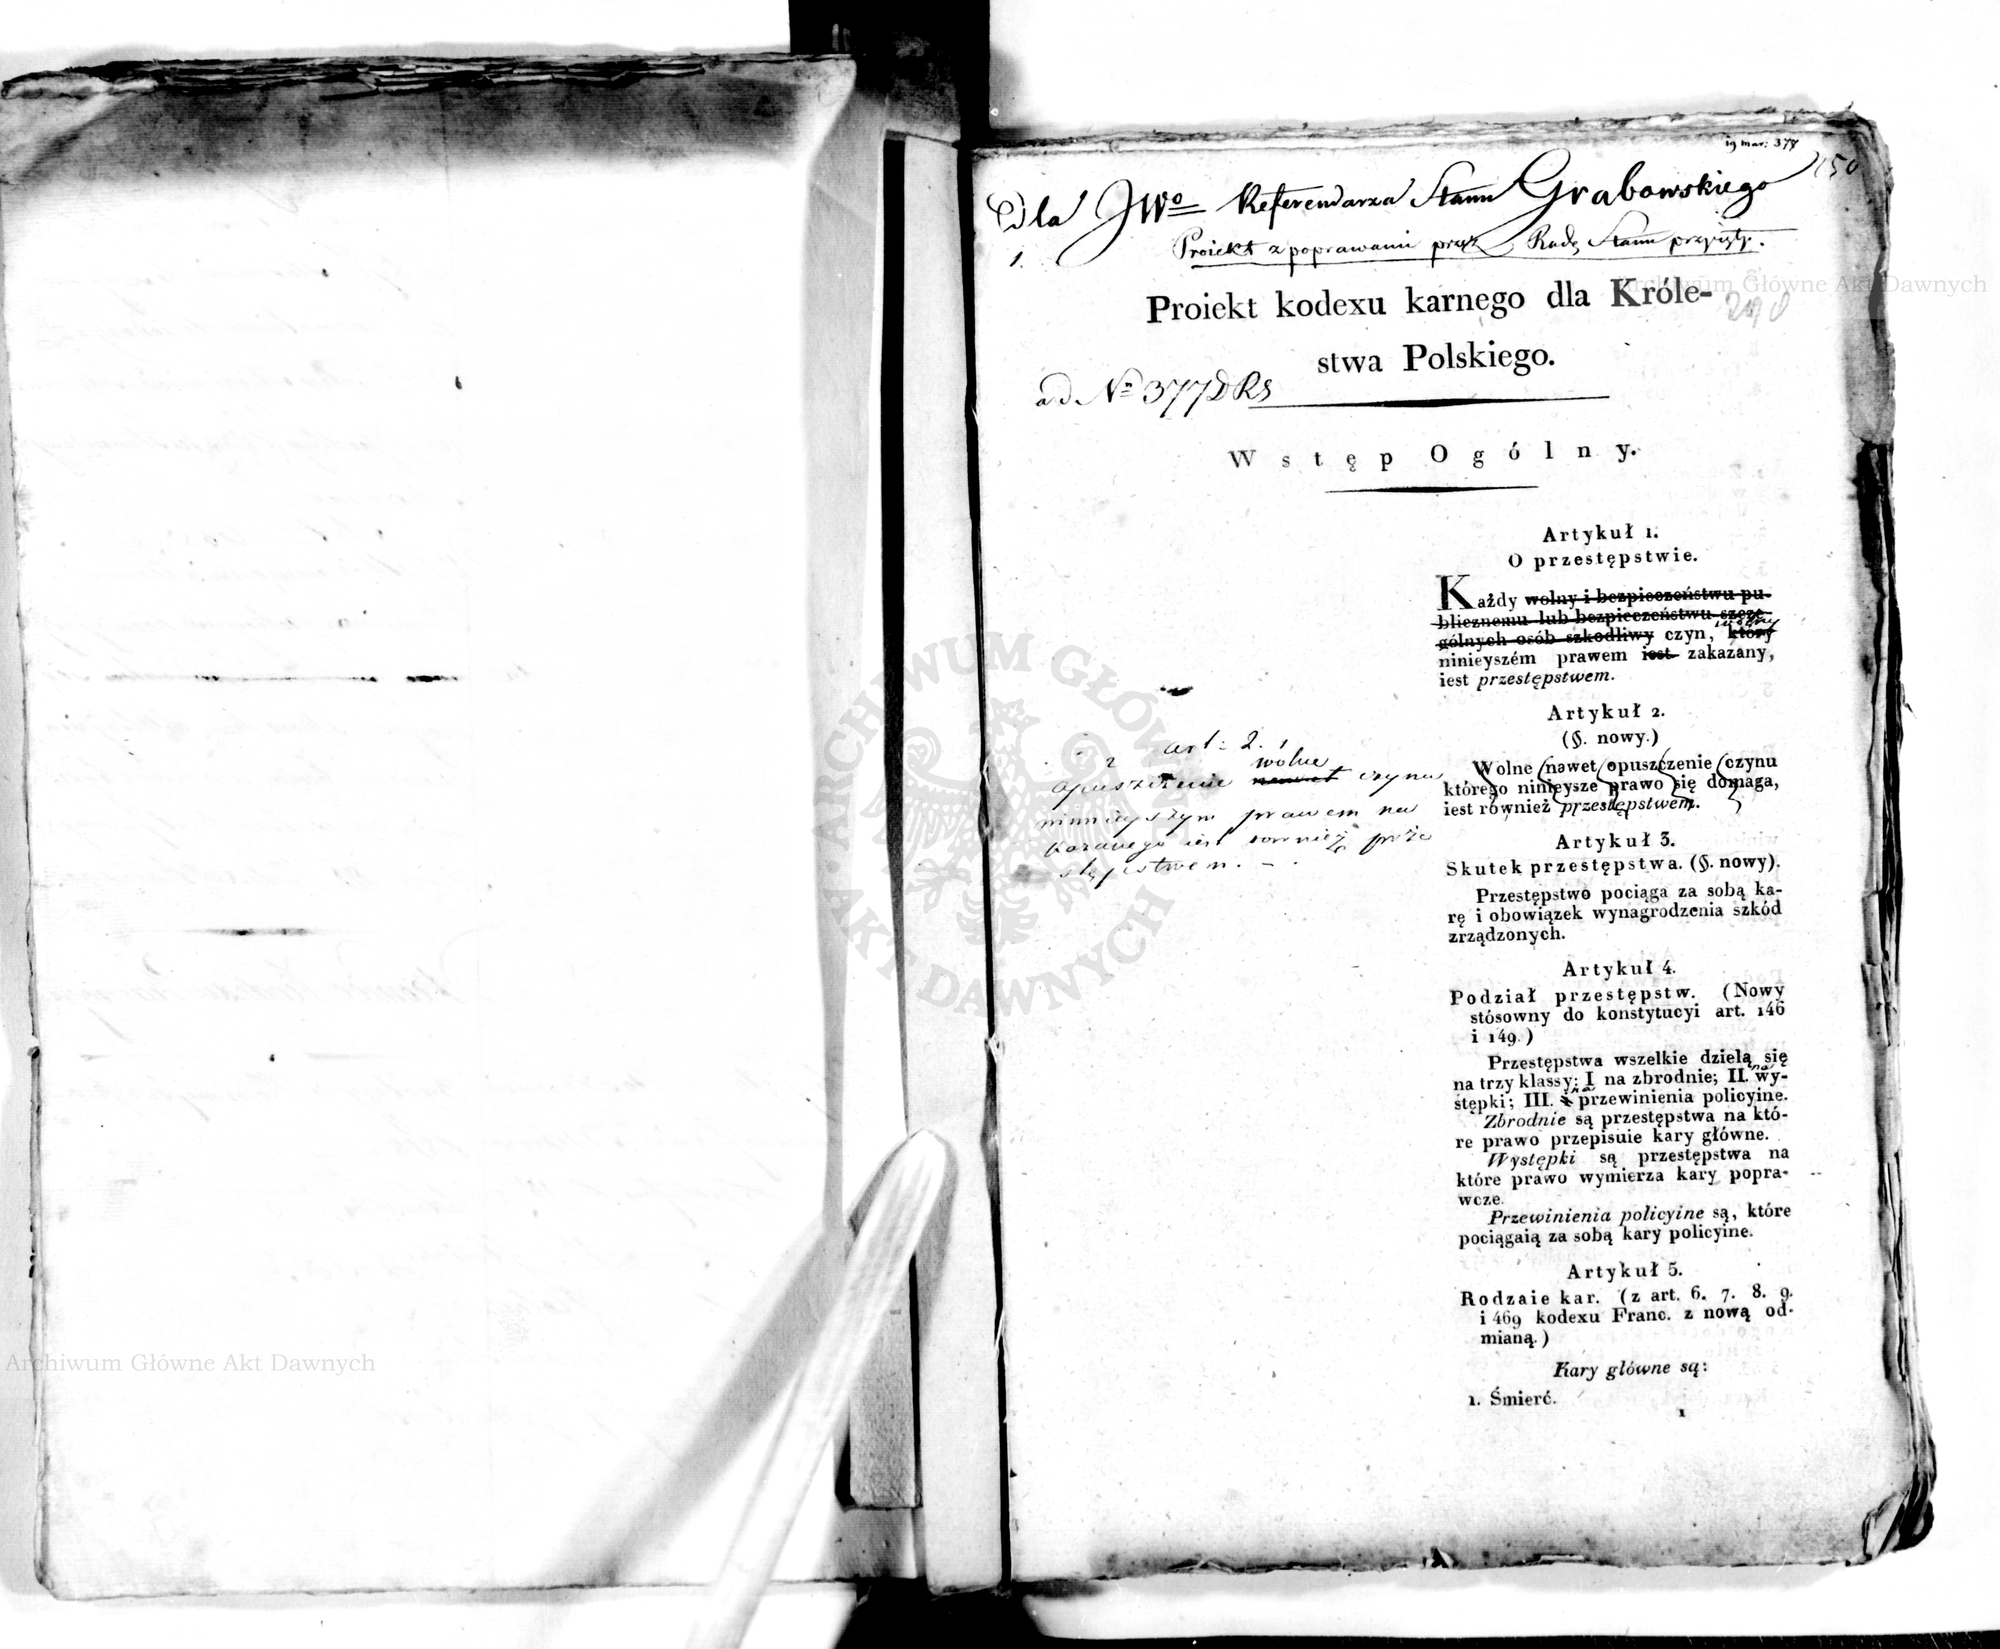 19 mar: 378
Dla JWo Referendarza Stanu Grabowskiego
1. Proiekt z poprawami przez Radę Stanu przyięty.
Proiekt kodexu karnego dla Króle-
stwa Polskiego.
ad No 377 D R S
Wstęp Ogólny.
Artykuł 1.
O przestępstwie.
Każdy wolny i bezpieczeństwu pu-
blicznemu lub bezpieczeństwu szcze-
gólnych osób szkodliwy czyn, który
wolny
ninieyszém prawem iest zakazany,
iest przestępstwem.
Artykuł 2.
(§. nowy.)
Wolne nawet opuszczenie czynu
którego ninieysze prawo się domaga,
iest również przestępstwem.
art: 2. 1
2 wolne
opuszczenie nawet czynu
ninieyszym prawem na
kazanego iest rownież prze
stępstwem. -
Artykuł 3.
Skutek przestępstwa. (§. nowy).
Przestępstwo pociąga za sobą ka-
rę i obowiązek wynagrodzenia szkód
zrządzonych.
Artykuł 4.
Podział przestępstw. (Nowy
stósowny do konstytucyi art. 146
i 149.)
Przestępstwa wszelkie dzielą się
na trzy klassy: I na zbrodnie; II. na wy-
stępki; III. na przewinienia policyine.
Zbrodnie są przestępstwa na któ-
re prawo przepisuie kary główne.
Występki są przestępstwa na
które prawo wymierza kary popra-
wcze.
Przewinienia policyine są, które
pociągaią za sobą kary policyine.
Artykuł 5.
Rodzaie kar. (z art. 6. 7. 8. 9.
i 469 kodexu Franc. z nową od-
mianą.)
Kary główne są:
1. Śmierć.
1
Archiwum Główne Akt Dawnych
Archiwum Główne Akt Dawnych
ARCHIWUM GŁÓWNE AKT DAWNYCH